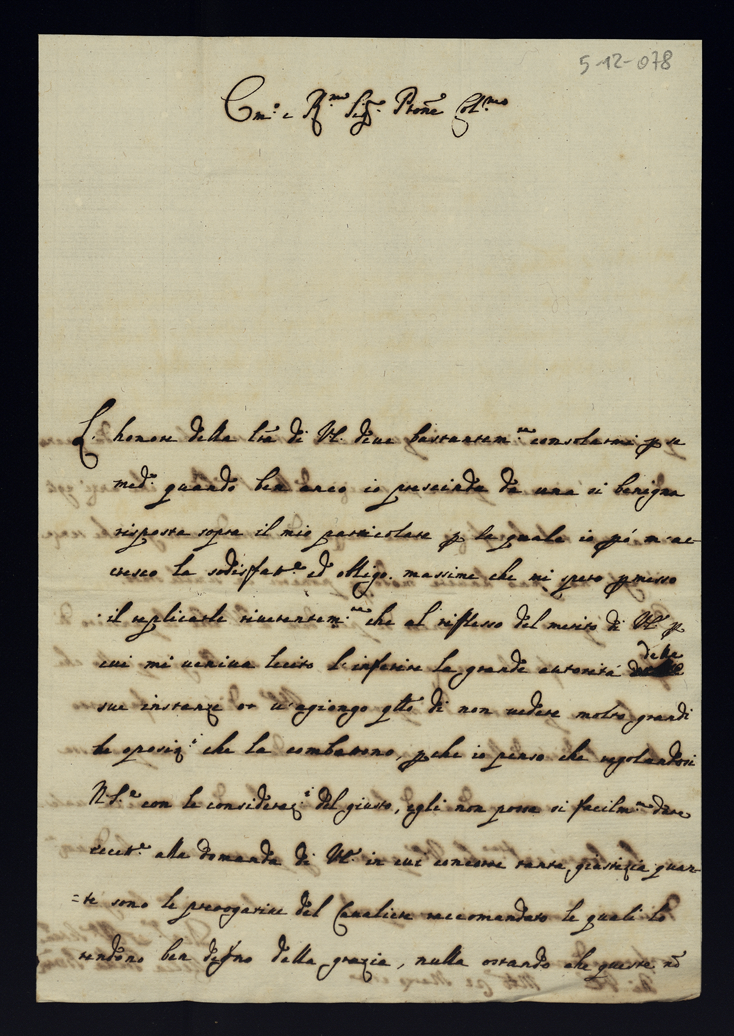 5-12-078
Em.º e R.mo Sig.r Prone Col.mo
L'honore della lra di VE. deve bastantem.te consolarmi p se
med.ª quando ben anco io prescinda da una si benigna
risposta sopra il mio particolare p la quale io pó m'ac-
cresco la sodisfat.e ed obligo. massime che mi spero pmesso
il replicarle riverentem.te che al riflesso del merito di VE. p
cui mi veniva lecito l'inferire la grande autorità delle
sue instanze or v'agiongo qto di non vedere molto grandi
le oposiz.i che la combattono, pche io penso che regolandosi
N.S.re con le consideraz.i del giusto, egli non possa si facilm.te dare
eccet.e alla domanda di VE. in cui concorre tanta giustizia quan-
=te sono le prerogative del Cavaliere raccomandato le quali lo
rendono ben degno della grazia, nulla ostando che queste nõ